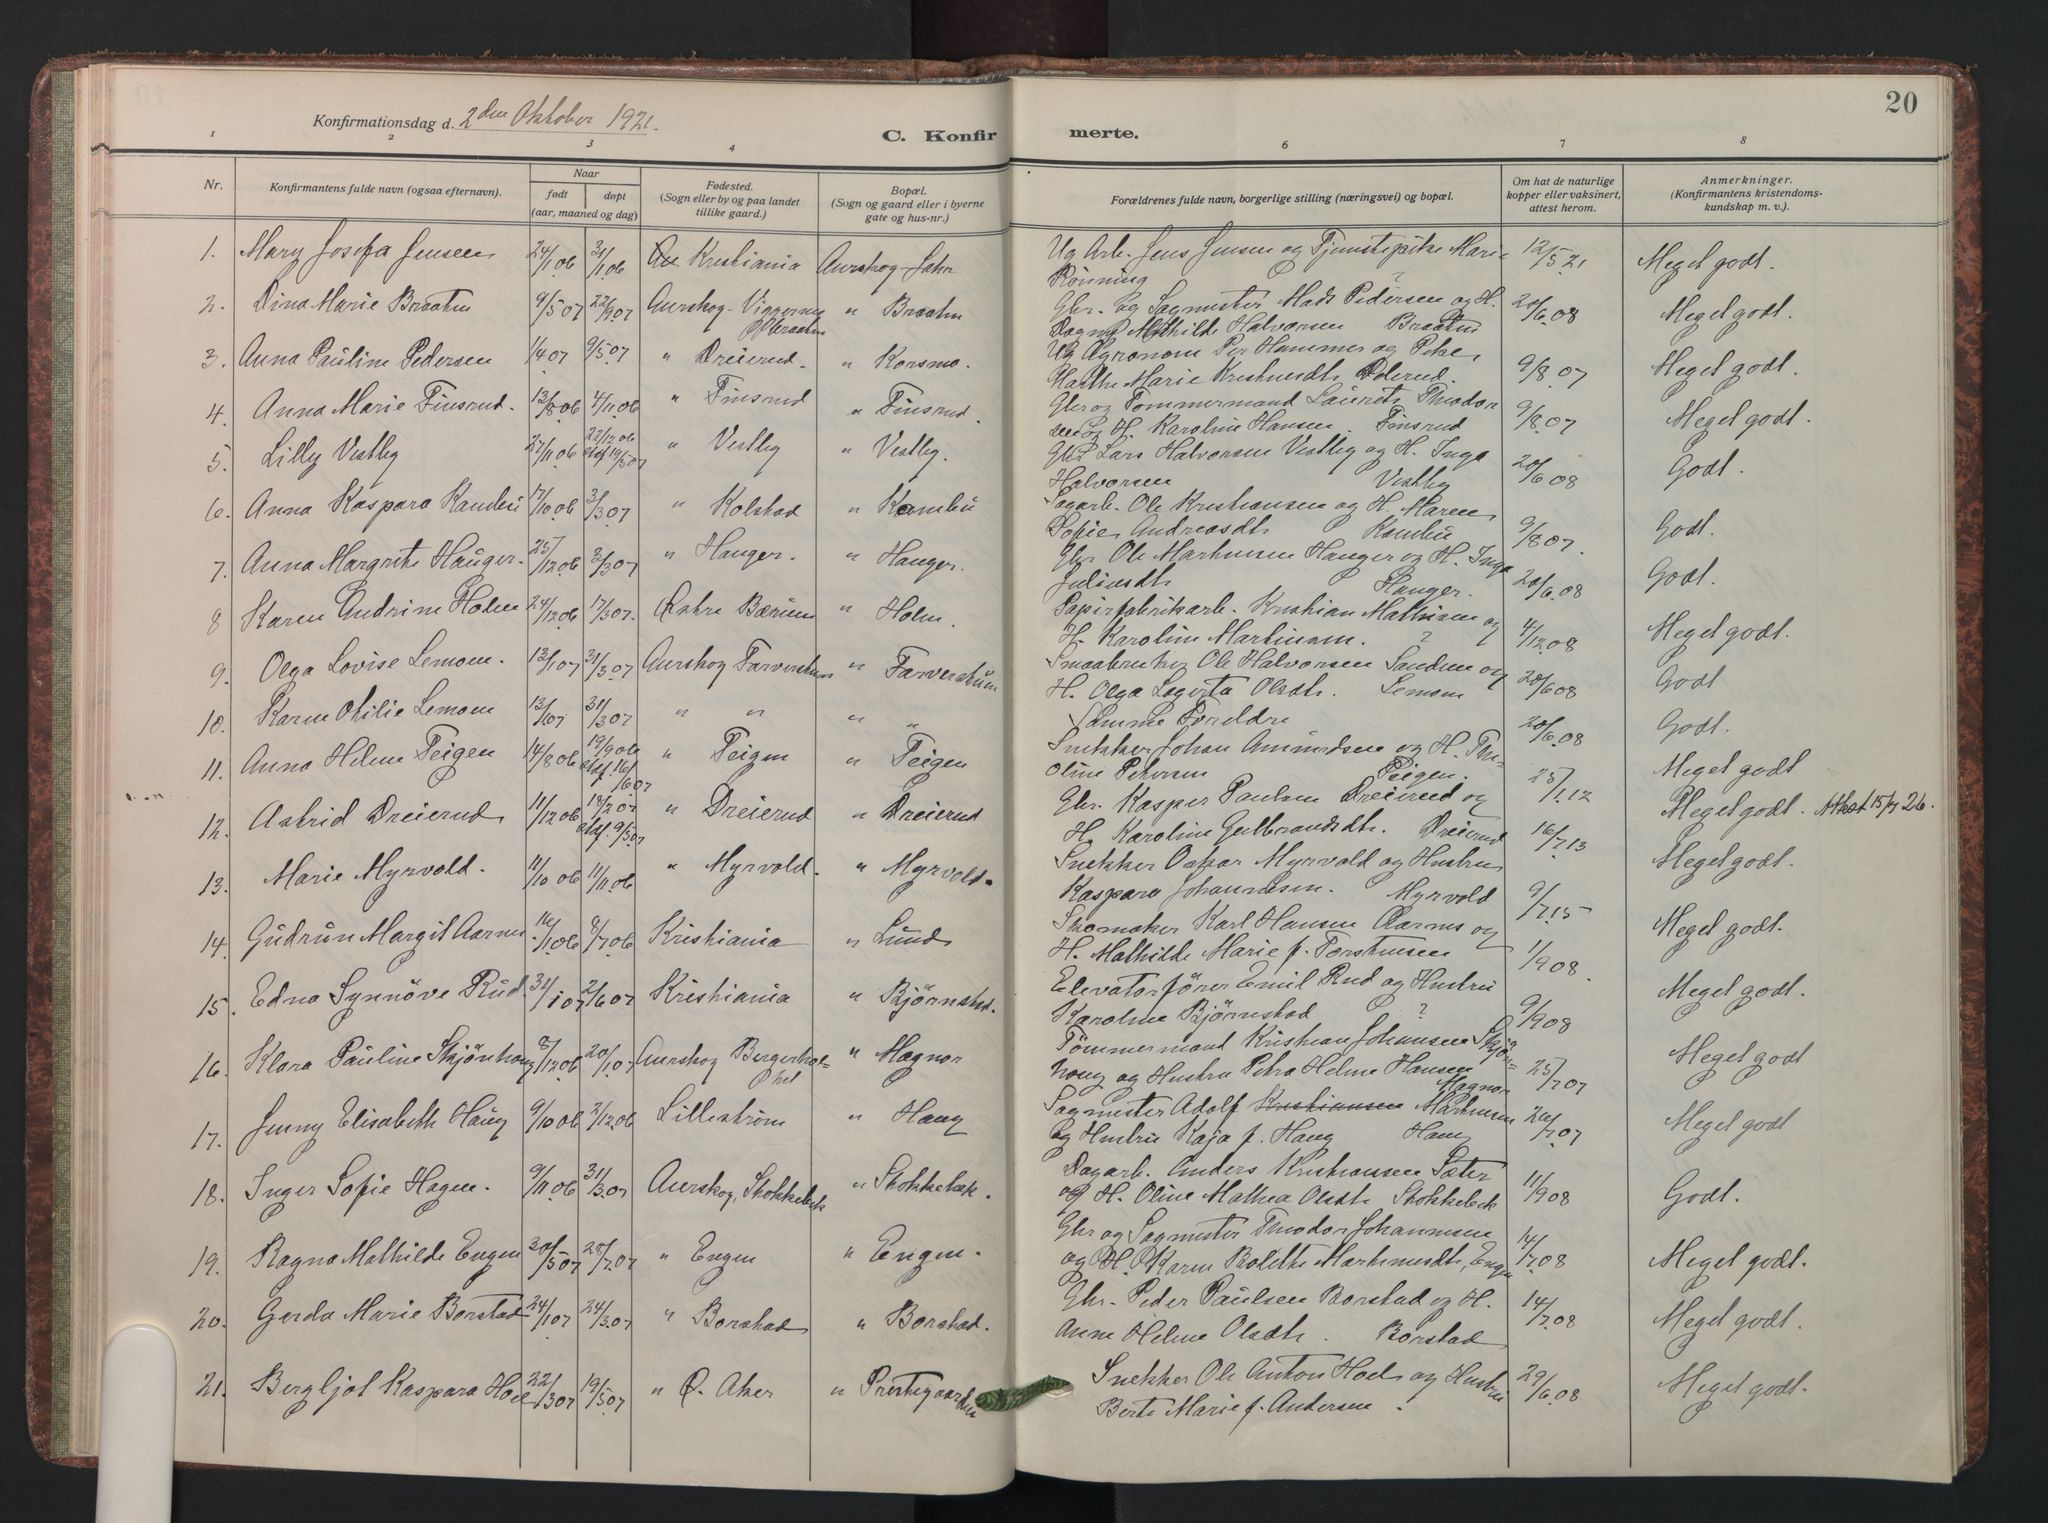 20
Konfirmationsdag d. 2den Oktober 1921.
C. Konfirmerte.
1 2 3 4 6 7 8
Nr. Konfirmantens fulde navn (ogsaa efternavn). Naar født døpt (aar, maaned og dag) Fødested. (Sogn eller by og paa landet tillike gaard.) Bopæl. (Sogn og gaard eller i byerne gate og hus-nr.) Forældrenes fulde navn, borgerlige stilling (næringsvei) og bopæl. Om hat de naturlige kopper eller vaksinert, attest herom. Anmerkninger. (Konfirmantens kristendomskundskap m. v.).
1. Mary Josefa Jensen 24/1 06 31/1 06 Kristiania Aurskog Ug Arb. Jens Jensen og Tjenestepike Marie 12/5 21 Meget godt.
Rönning ?
2. Dina Marie Braaten 9/5 07 22/9 07 Aurskog " Braaten Gbr. og Sagmester Mads Pedersen og H. 20/6 08 Meget godt.
Dagny Mathilde Halvorsen Braaten
3. Anna Pauline Pedersen 1/4 07 9/5 07 " Dreierud " Korsmo. Ug Agronom Per Hammer og Pike 9/8 07 Meget godt.
Marthe Marie
4. Anna Marie Finsrud. 13/8 06 4/11 06 " Finsrud " Finsrud Gbr og Tömmermand Laurits Theodor 9/8 07 Meget godt.
og H. Karoline Hansen. Finsrud
5. Lilly Vestby 27/11 06 22/12 06 stdf 19/5 07 " Vestby " Vestby. Gbr Lars Halvorsen Vestby og H. Inga 20/6 08 Godt.
Halvorsen Vestby
6. Anna Kaspara Kambü 17/10 06 3/3 07 " Kolstad " Kambü Sagarb. Ole Kristiansen og H. Maren 9/8 07. Godt.
Sofie Andreasdtr Kambü
7. Anna Margrete Hauger. 25/12 06 3/3 07 " Hauger. " Hauger. Gbr. Ole Martinsen Hauger og H. Inga 20/6 08 Godt.
Juliusdtr Hauger.
8 Karen Andrine Holm 24/12 06 17/3 07. Östre Bærum " Holm. Papirfabrikarb. Kristian Mathisen og 4/12 08 Meget godt.
H. Karoline Martinsen. ?
9. Olga Lovise Lemoen. 13/1 07 31/3 07 Aurskog " Smaabruker Ole Halvorsen Sanden og 20/6 08 Godt
H. Olga Olsdtr. Lemoen
10. Karen Otilie Lemoen 13/1 07 31/3 07 " " " " Samme Foreldre 20/6 08 Godt.
11. Anna Helene Teigen 14/8 06 19/9 06 stdf. 16/6 07 " Teigen " Teigen Snekker Johan Amundsen og H. The- 25/1 12 Meget godt
oline Petersen Teigen.
12. Astrid Dreierud 11/12 06 18/2 07 stdf. 9/5 07 " Dreierud " Dreierud Gbr. Kasper Paulsen Dreierud og 16/7 13 Meget godt. Attest 15/7 26.
H. Karoline Gulbrandsdtr. Dreierud
13. Marie Myrvold. 11/10 06 11/11 06 " Myrvold. " Myrvold. Snekker Oskar Myrvold og Hustru 9/7 15 Meget godt.
Kaspara Johannesen. Myrvold
14. Gudrun Margit Aarnes 16/1 06 8/7 06 Kristiania " Lund Skomaker Karl Hansen Aarnes og 1/9 08. Meget godt.
H. Mathilde Marie f. Torstensen
15. Edna Synnöve Rud. 31/1 07 2/6 07 Kristiania " Björnstad. Elevatorförer Emil Rud og Hustru 9/9 08 Meget godt.
Karoline Björnstad ?
16. Klara Pauline Skjönhaug 8/12 06 20/1 07 Aurskog " Magnor Tömmermand Kristian Johansen Skjön- 25/7 07 Meget godt
houg og Hustru Petra Helene Hansen Magnor
17. Jenny Elisabeth Haug 9/10 06 2/12 06 Lilleström " Haug Sagmester Adolf Kristiansen Martinsen 26/7 07 Meget godt
og Hustru Kaja f. Haug Haug
18. Inger Sofie Hagen. 9/11 06 31/3 07 Aurskog, Stokkebæk " Stokkebæk. Dagarb. Anders Kristiansen Sæter 11/9 08 Godt.
og H. Oline Mathea Olsdtr Stokkebæk
19. Ragna Mathilde Engen 30/5 07 28/7 07 " Engen " Engen. Gbr og Sagmester Theodor Johannesen 14/7 08 Meget godt.
og H. Karen Bolette Martinusdtr, Engen
20. Gerda Marie Borstad 24/1 07 24/3 07 " Borstad " Borstad. Gbr. Peder Paulsen Borstad og H. 14/7 08 Meget godt.
Anne Helene Olsdtr. Borstad
21. Bergljot Kaspara Hoel 22/3 07 19/5 07 " Ö. Aker " Prestegaarden Snekker Ole Anton Hoel og Hustru 29/6 08 Meget godt.
Berte Marie f. Andersen.